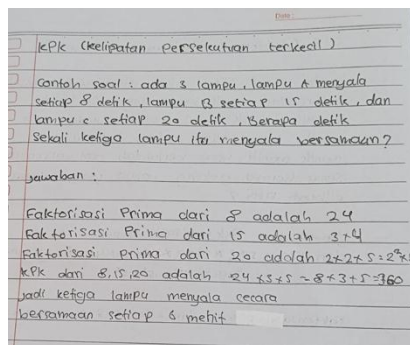 Date:
KPK (Kelipatan Persekutuan terkecil)
Contoh soal : ada 3 lampu, lampu A menyala
setiap 8 detik, lampu B setiap 15 detik, dan
lampu c setiap 20 detik, Berapa detik
Sekali ketiga lampu itu menyala bersamaan?
Jawaban :
Faktorisasi Prima dari 8 adalah 24
Faktorisasi Prima dari 15 adalah 3x4
Faktorisasi Prima dari 20 adalah 2x2x5=2²x
KPK dari 8,15,20 adalah 24x3x5=8x3+5=360
Jadi ketiga lampu menyala cecara
bersamaan setiap 6 menit